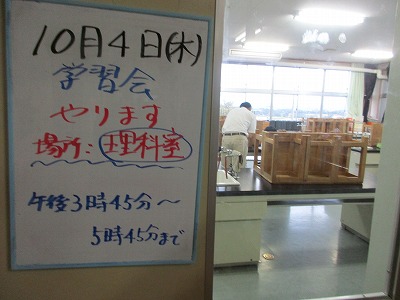 10月4日(木)
学習会
やります
場所:理科室
午後3時45分～
5時45分まで